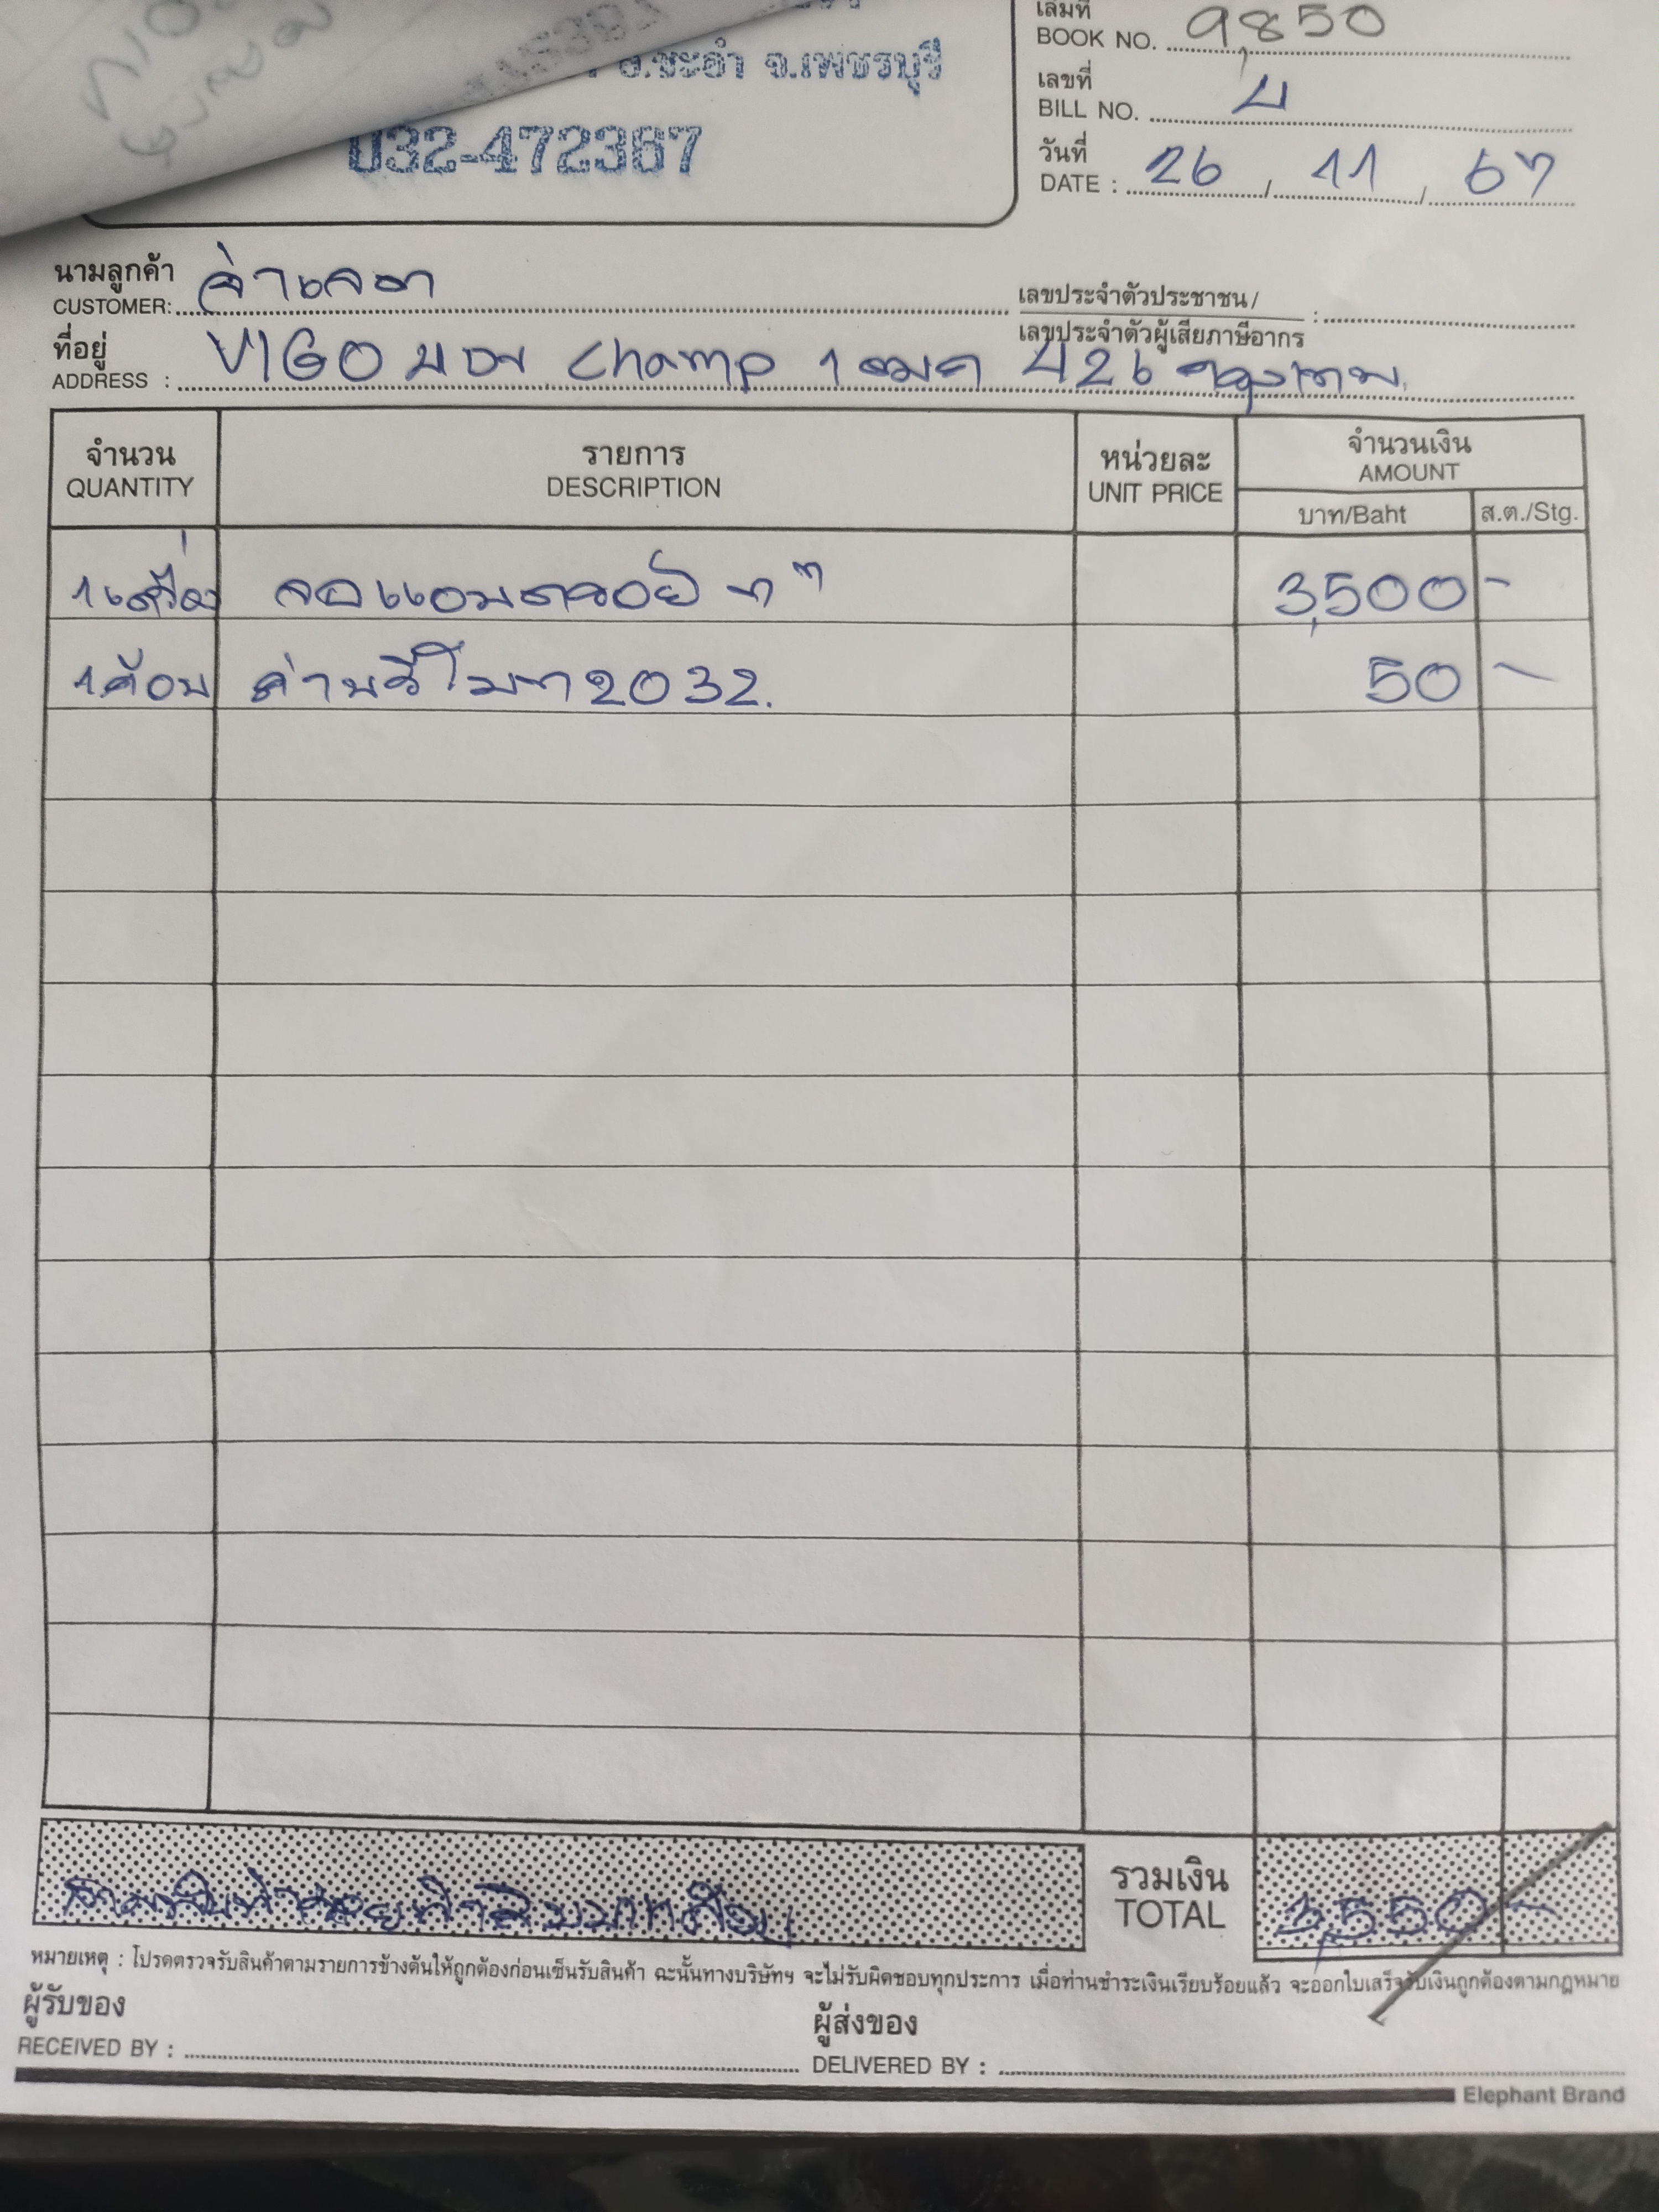 เล่มที่
BOOK NO. 9,850
อ.ชะอำ จ.เพชรบุรี
032-472367
เลขที่
BILL NO. 4
วันที่
DATE : 26 / 11 / 67
นามลูกค้า
CUSTOMER: จ่าเจตา
เลขประจำตัวประชาชน /
เลขประจำตัวผู้เสียภาษีอากร :
ที่อยู่
ADDRESS : VIGO Champ 1ฒค 426 กรุงเทพ
จำนวน รายการ หน่วยละ จำนวนเงิน
QUANTITY DESCRIPTION UNIT PRICE AMOUNT
บาท/Baht ส.ต./Stg.
1เครื่อง จอแอนดรอย 7" 3,500 -
1ก้อน ถ่านรีโมท 2032. 50 -
สามพันห้าร้อยห้าสิบบาทถ้วน
รวมเงิน
TOTAL 3,550 -
หมายเหตุ : โปรดตรวจรับสินค้าตามรายการข้างต้นให้ถูกต้องก่อนเซ็นรับสินค้า ฉะนั้นทางบริษัทฯ จะไม่รับผิดชอบทุกประการ เมื่อท่านชำระเงินเรียบร้อยแล้ว จะออกใบเสร็จรับเงินถูกต้องตามกฎหมาย
ผู้รับของ
RECEIVED BY :
ผู้ส่งของ
DELIVERED BY :
Elephant Brand